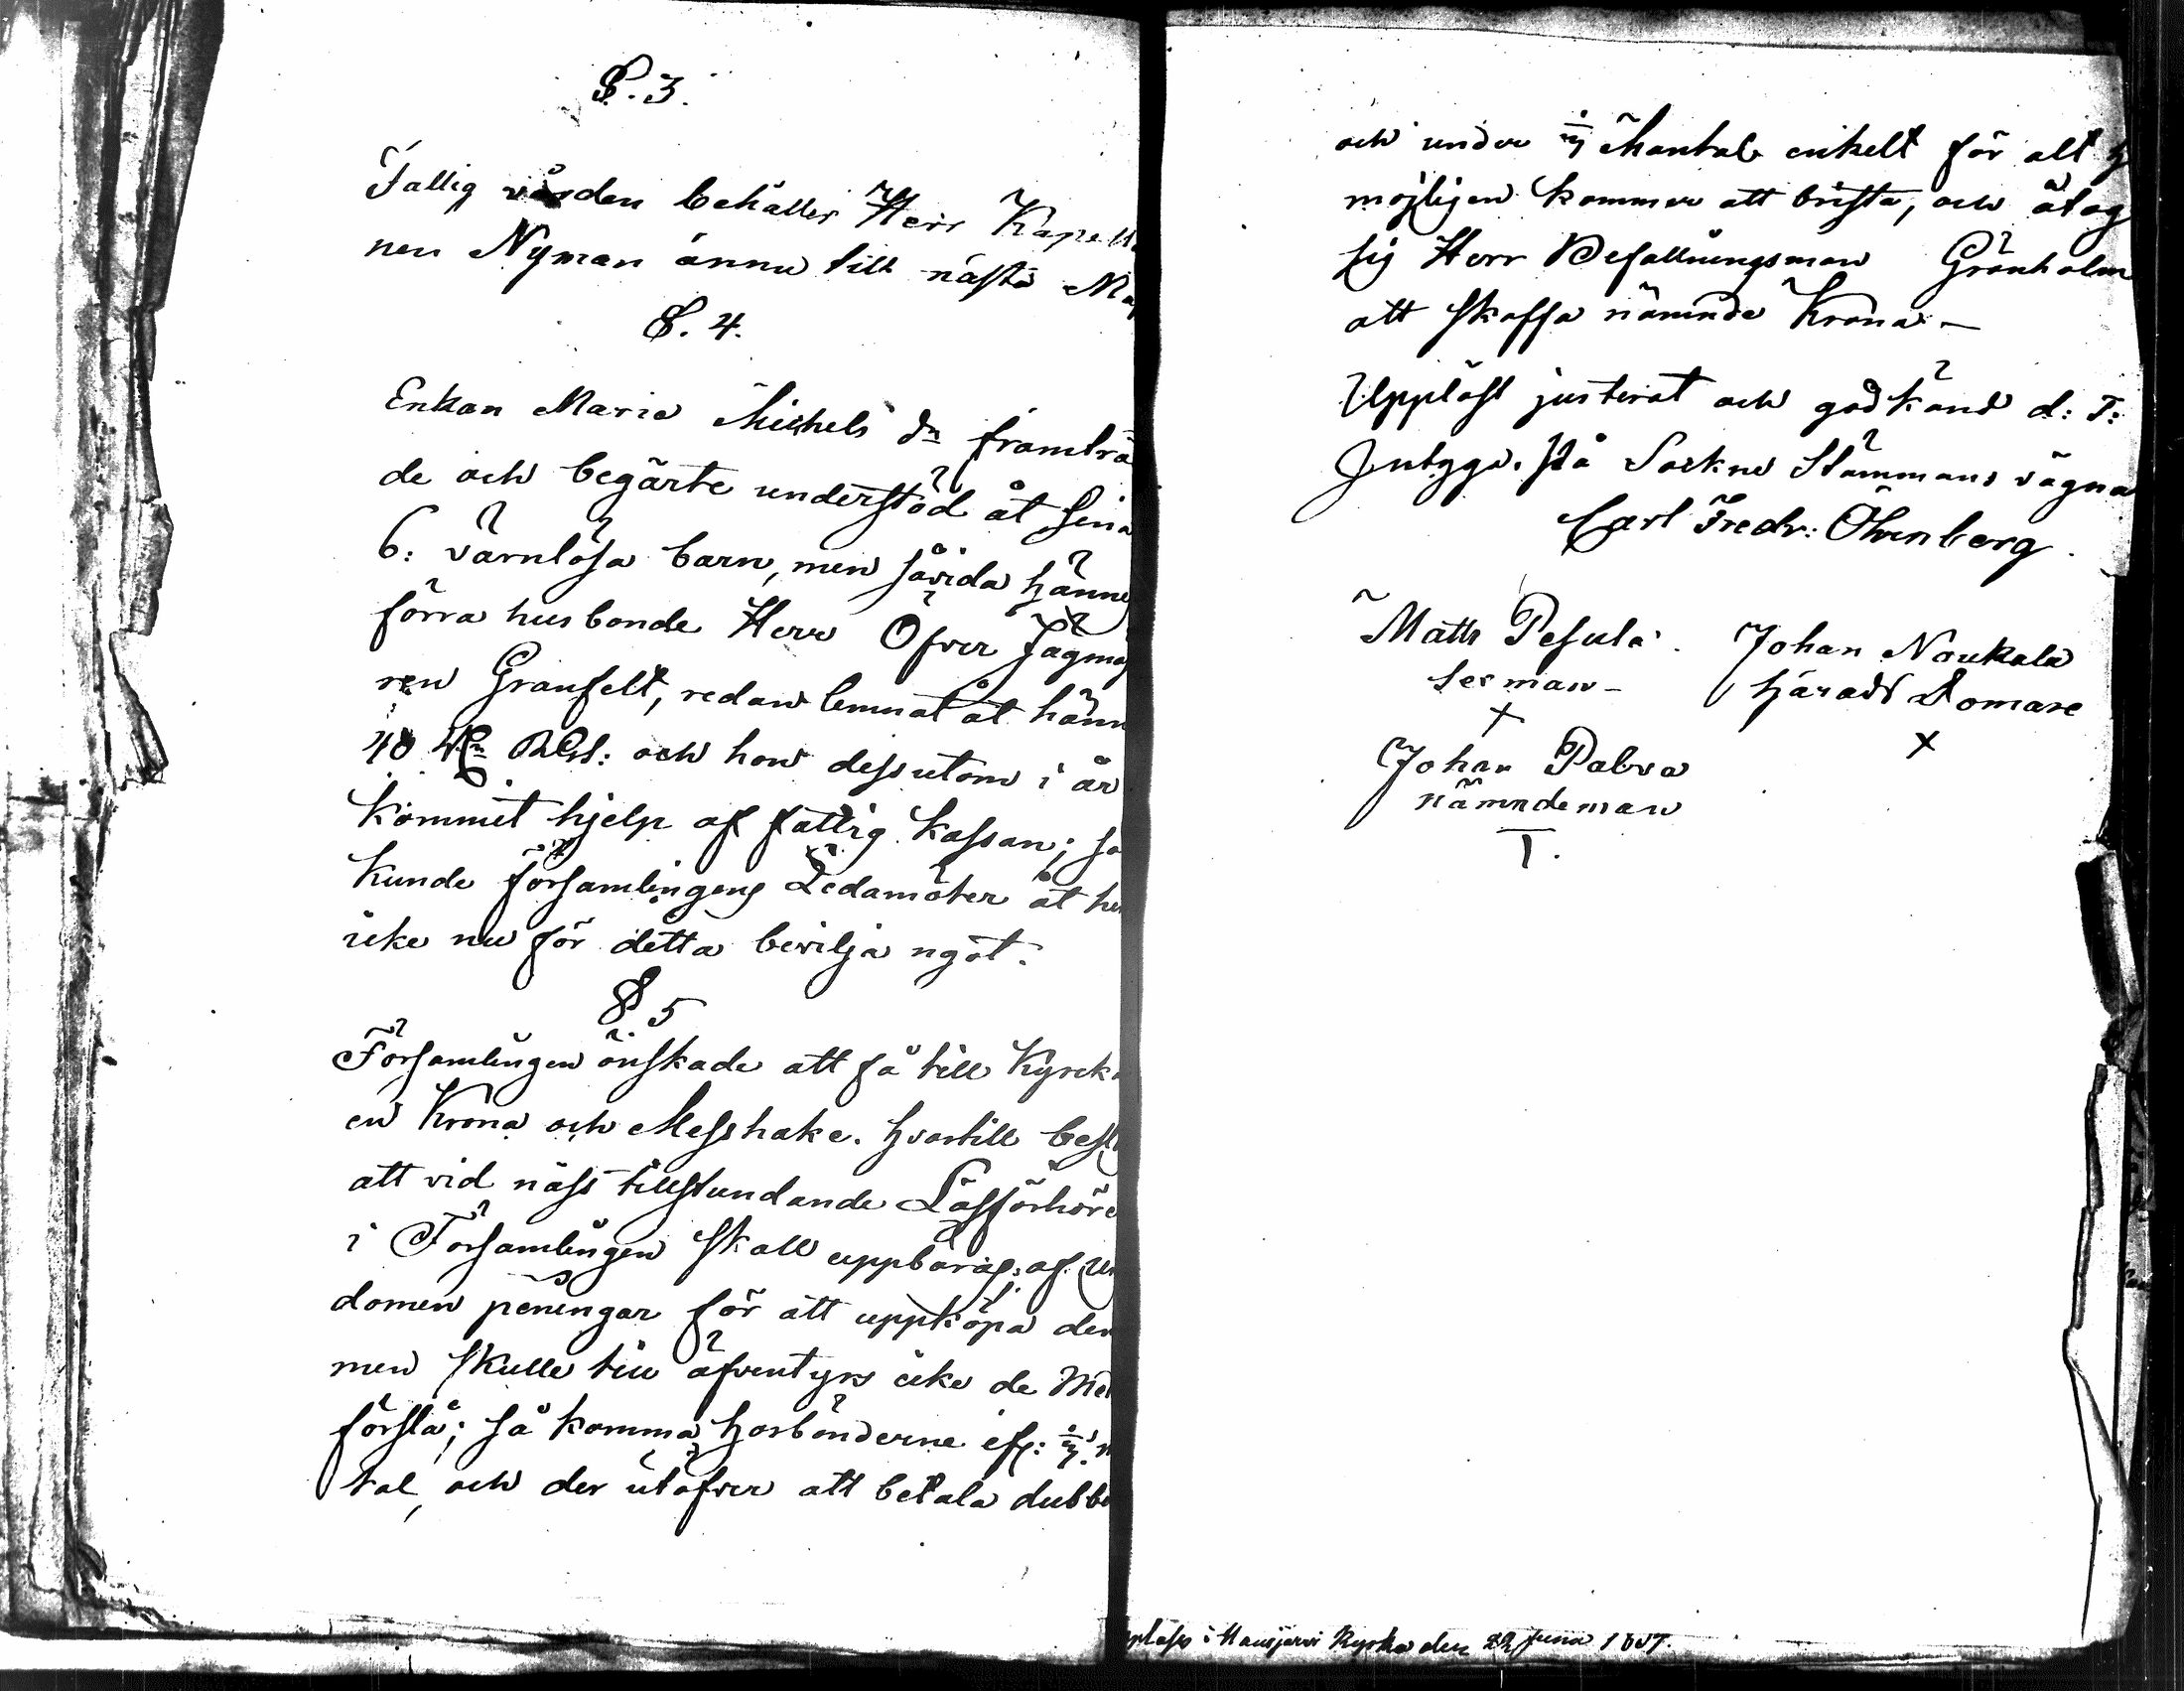 §. 3.
Fattig vården behåller Herr Kapell
nen Nyman ännu till nästa Maj
§. 4.
Enkan Maria Michels dr framträd
de och begärte understöd åt sina
6: värnlösa barn, men såvida hänne
förra husbonde Herr Öfver Jägmäs
ren Granfelt, redan lemnat åt hänn
48 Rbl: och hon dessutom i år
kommit hjelp af fattig kassan; så
kunde församlingens Ledamöter åt he
icke nu för detta bevilja ngot.
§. 5
Församlingen önskade att få till Kyrck
en Krona och Messhake. hvartill besl
att vid näst tillstundande Läsförhöre
i Församlingen skall uppbäras af un
domen peningar för att uppköpa den
men skulle till äfventyrs icke de Med
förslå; så komma husbönderne ifr:
tal, och der utöfver att betala dubbe
och under Mantal enkelt för alt
möjligen kommer att brista, och åtog
sig Herr Befallningsman Grönholm
att skaffa nämnde Krona.-
Uppläst justerat och godkänd d: T:
Intyga. På Sockne Stämmans vägna
Carl Fredr: Öhrnberg.
Matts Pesula. Johan Noukala
sexman- härads Domare
X X
Johan Palva
nämndeman
T.
upläses i Hausjärvi Kyrka den 22 Juna